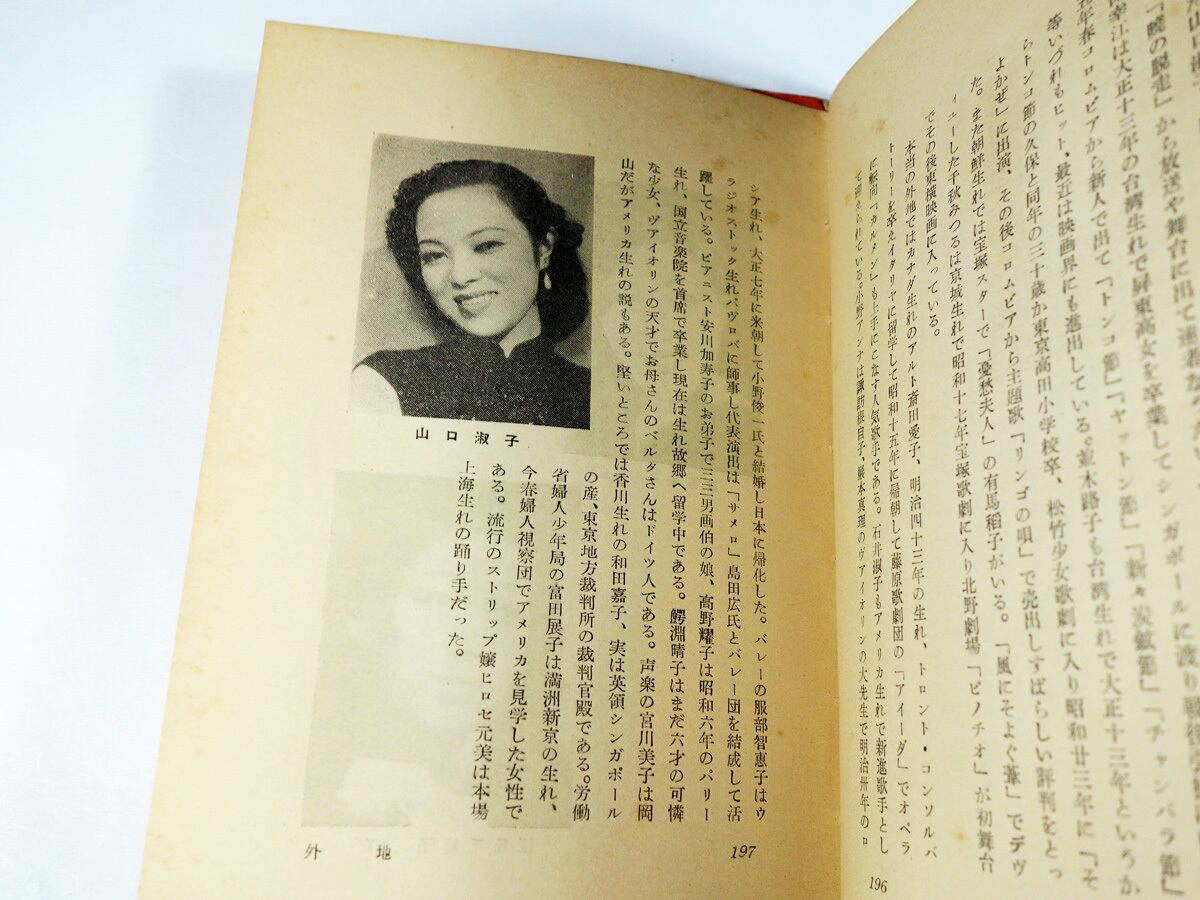 「暁の脱走」から放送や舞台に出て
幸江は大正十三年の台湾生れで屏東高女を卒業してシンガポールに渡り
五年春コロムビアから新人で出て「トンコ節」「ヤットン節」「新々炭鉱節」「チャンバラ節」
等いづれもヒット、最近は映画界にも進出している。並木路子も台湾生れで大正十三年というか
らトンコ節の久保と同年の三十歳か東京高田小学校卒、松竹少女歌劇に入り昭和廿三年に「そ
よかぜ」に出演、その後コロムビアから主題歌「リンゴの唄」で売出しすばらしい評判をとっ
た。また朝鮮生れでは宝塚スターで「憂愁夫人」の有馬稲子がいる。「風にそよぐ葦」でデヴ
ィューした千秋みつるは京城生れで昭和十七年宝塚歌劇に入り北野劇場「ピノチオ」が初舞台
でその後東横映画に入っている。
本当の外地ではカナダ生れのアルト斎田愛子、明治四十三年の生れ、トロント・コンソルバ
トーリーを卒えイタリヤに留学して昭和十五年に帰朝して藤原歌劇団の「アイーダ」でオペラ
に転向「カルメン」も上手にこなす人気歌手である。石井淑子もアメリカ生れで新進歌手とし
て迎えられている。小野アンナは諏訪根自子、巌本真理のヴァイオリンの大先生で明治卅年のロ
196
シア生れ、大正七年に米朝して小野俊一氏と結婚し日本に帰化した。バレーの服部智恵子はウ
ラジオストック生れパヴロバに師事し代表演出は「サメロ」島田広氏とバレー団を結成して活
躍している。ピアニスト安川加寿子のお弟子で三三男画伯の娘、高野耀子は昭和六年のパリー
生れ、国立音楽院を首席で卒業し現在は生れ故郷へ留学中である。鰐淵晴子はまだ六才の可憐
な少女、ヴァイオリンの天才でお母さんのベルタさんはドイツ人である。声楽の宮川美子は岡
山だがアメリカ生れの説もある。堅いところでは香川生れの和田嘉子、実は英領シンガポール
の産、東京地方裁判所の裁判官殿である。労働
省婦人少年局の富田展子は満洲新京の生れ、
今春婦人視察団でアメリカを見学した女性で
ある。流行のストリップ嬢ヒロセ元美は本場
上海生れの踊り手だった。
山口淑子
外地
197